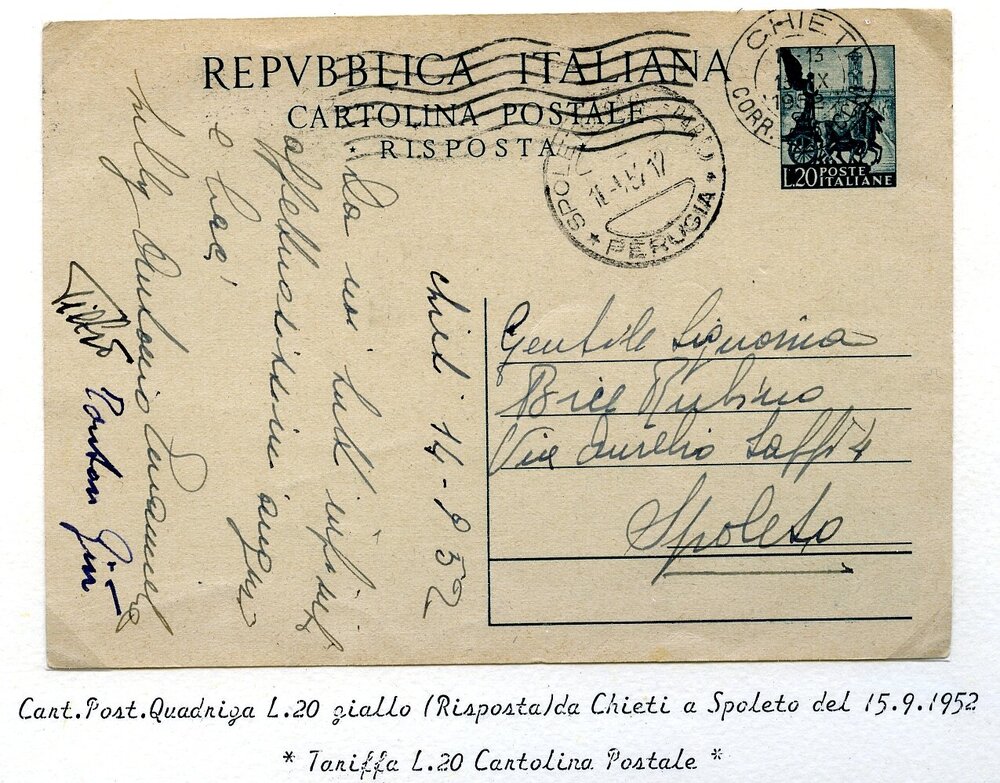 REPVBBLICA ITALIANA
CARTOLINA POSTALE
* RISPOSTA *
CHIETI
13
IX
CORR.
SPOLE
PERUGIA
L.20 POSTE ITALIANE
Chieti 14-9 52
Da noi tutti infiniti
affettuosissimi auguri
e baci
Lilly Antonio
Gentile Signorina
Bice Rubino
Via Aurelio Saffi 4
Spoleto
Cart.Post.Quadriga L.20 giallo (Risposta)da Chieti a Spoleto del 15.9.1952
* Tariffa L.20 Cartolina Postale *